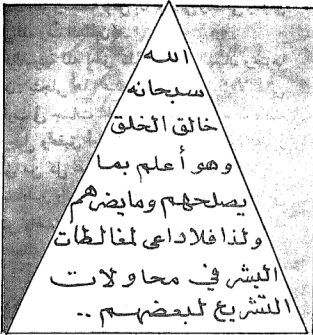 الله
سبحانه
خالق الخلق
وهو أعلم بما
يصلحهم وما يضرهم
ولذا فلا داعى لمغالطات
البشر في محاولات
التشريع لبعضهم ..